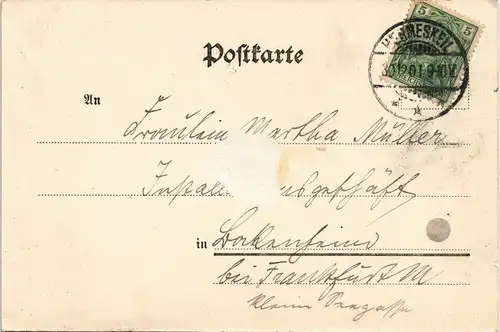 5 5
HERMESKEIL
Postkarte
An
Fräulein Martha Müller
Install geschäft
in Bockenheim
bei Frankfurt M
kleine Seegasse